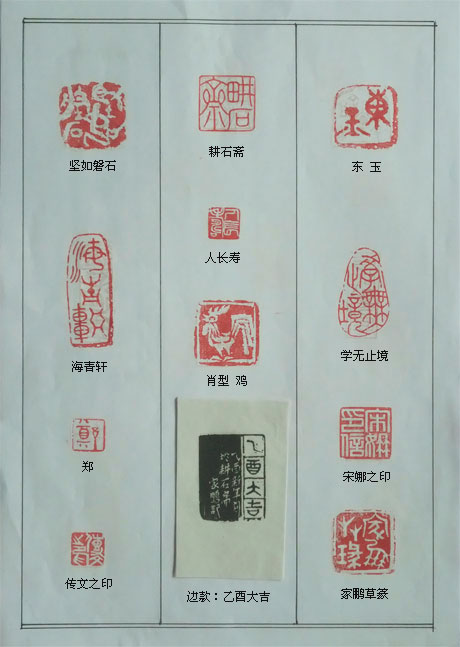 坚如磐石
海青轩
郑
传文之印
耕石斋
人长寿
肖型 鸡
乙酉大吉
边款：乙酉大吉
东 玉
学无止境
宋娜之印
家鹏草篆